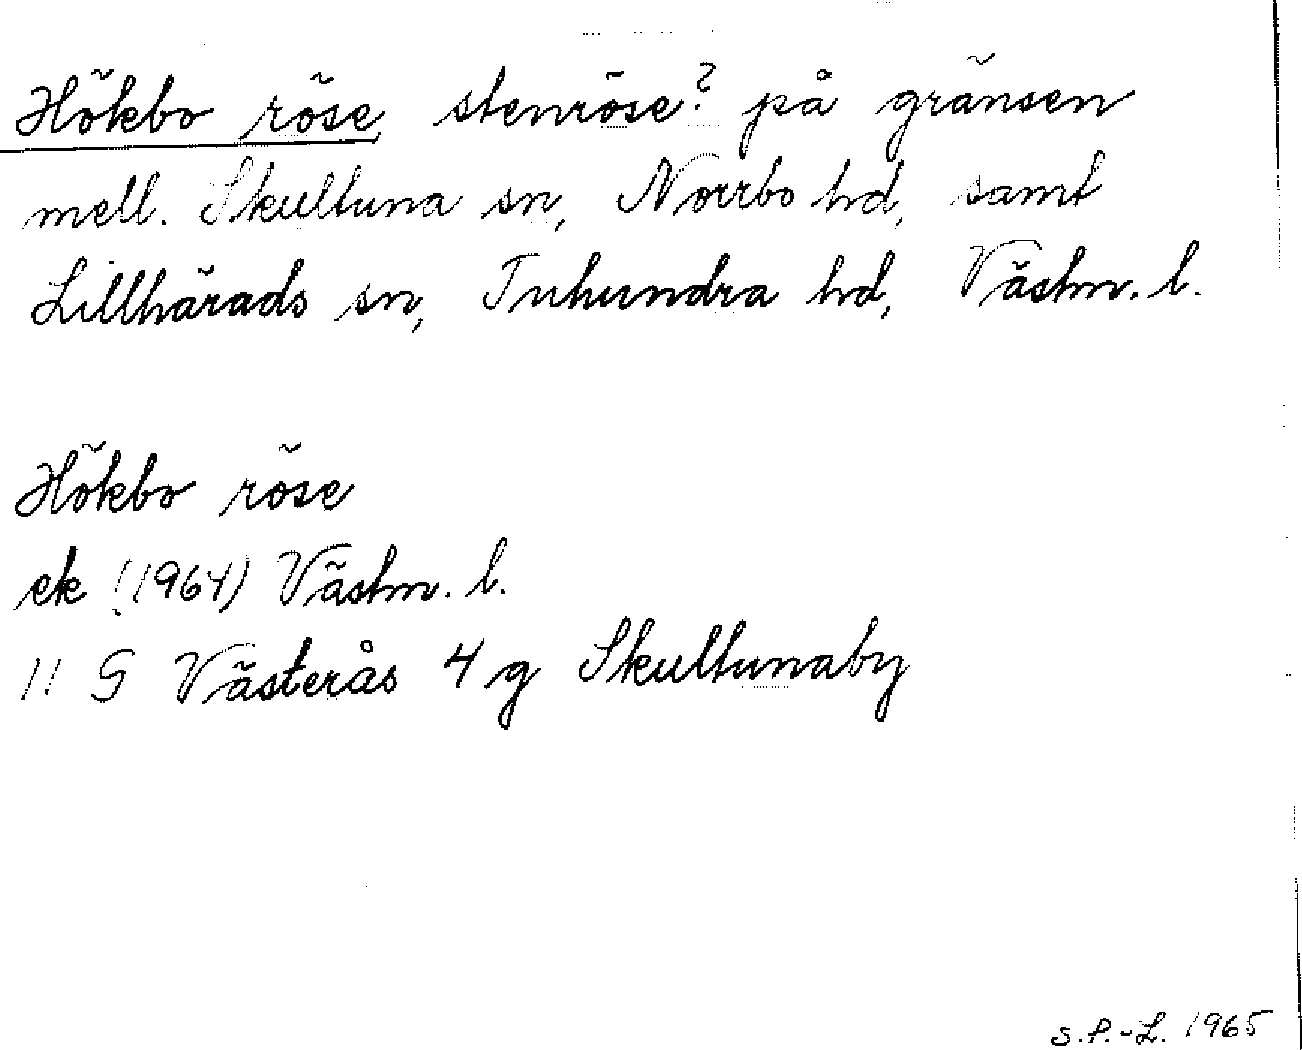 Hökbo röse stenröse? på gränsen
mell. Skultuna sn, Norrbo hd, samt
Lillhärads sn, Tuhundra hd, Västm. l.
Hökbo röse
ek !(1964) Västm. l.
11 G Västerås 4 g Skultunaby
S.P.-L. 1965